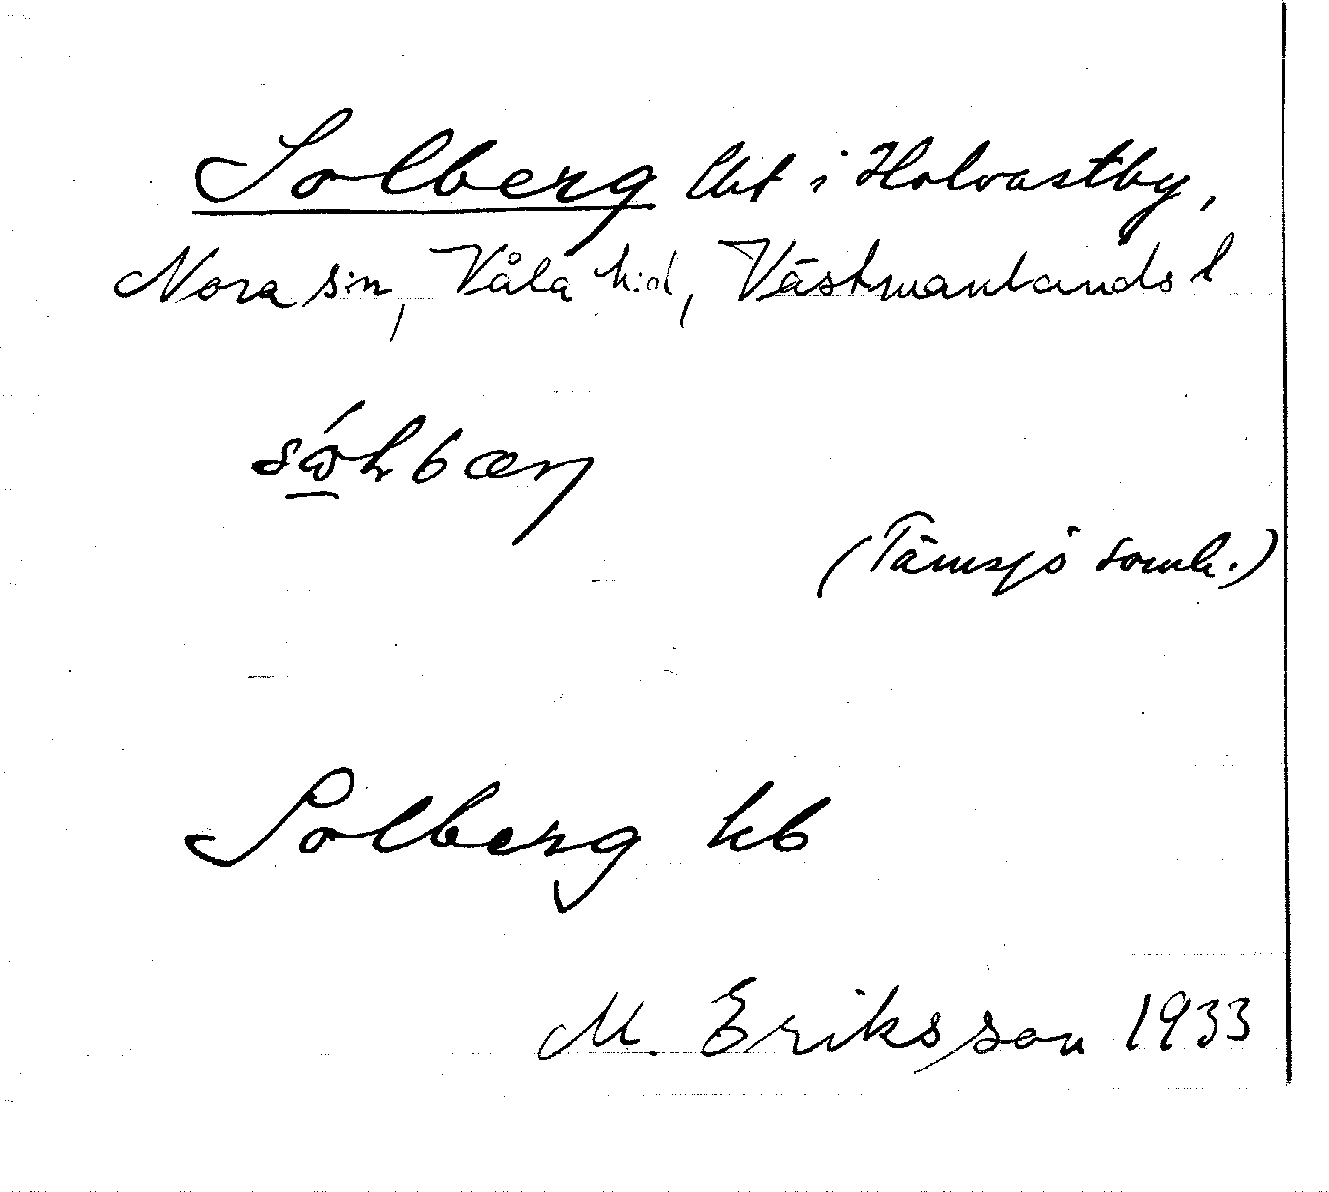 Solberg lht i Holvastby,
Nora s:n, Våla h:d, Västmanlands l
(Tärnsjö somh.)
Solberg kb
M. Eriksson 1933